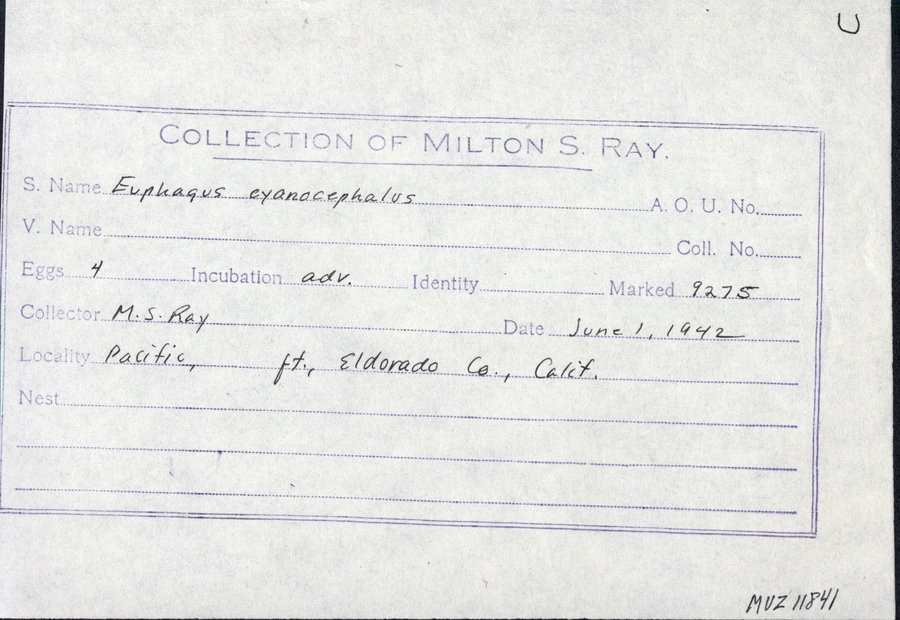 U
COLLECTION OF MILTON S. RAY.
S. Name Euphagus cyanocephalus A. O. U. No.
V. Name Coll. No.
Eggs 4 Incubation adv. Identity Marked 9275
Collector M.S. Ray Date June 1, 1942
Locality Pacific, ft., Eldorado Co., Calif.
Nest
MVZ 11841